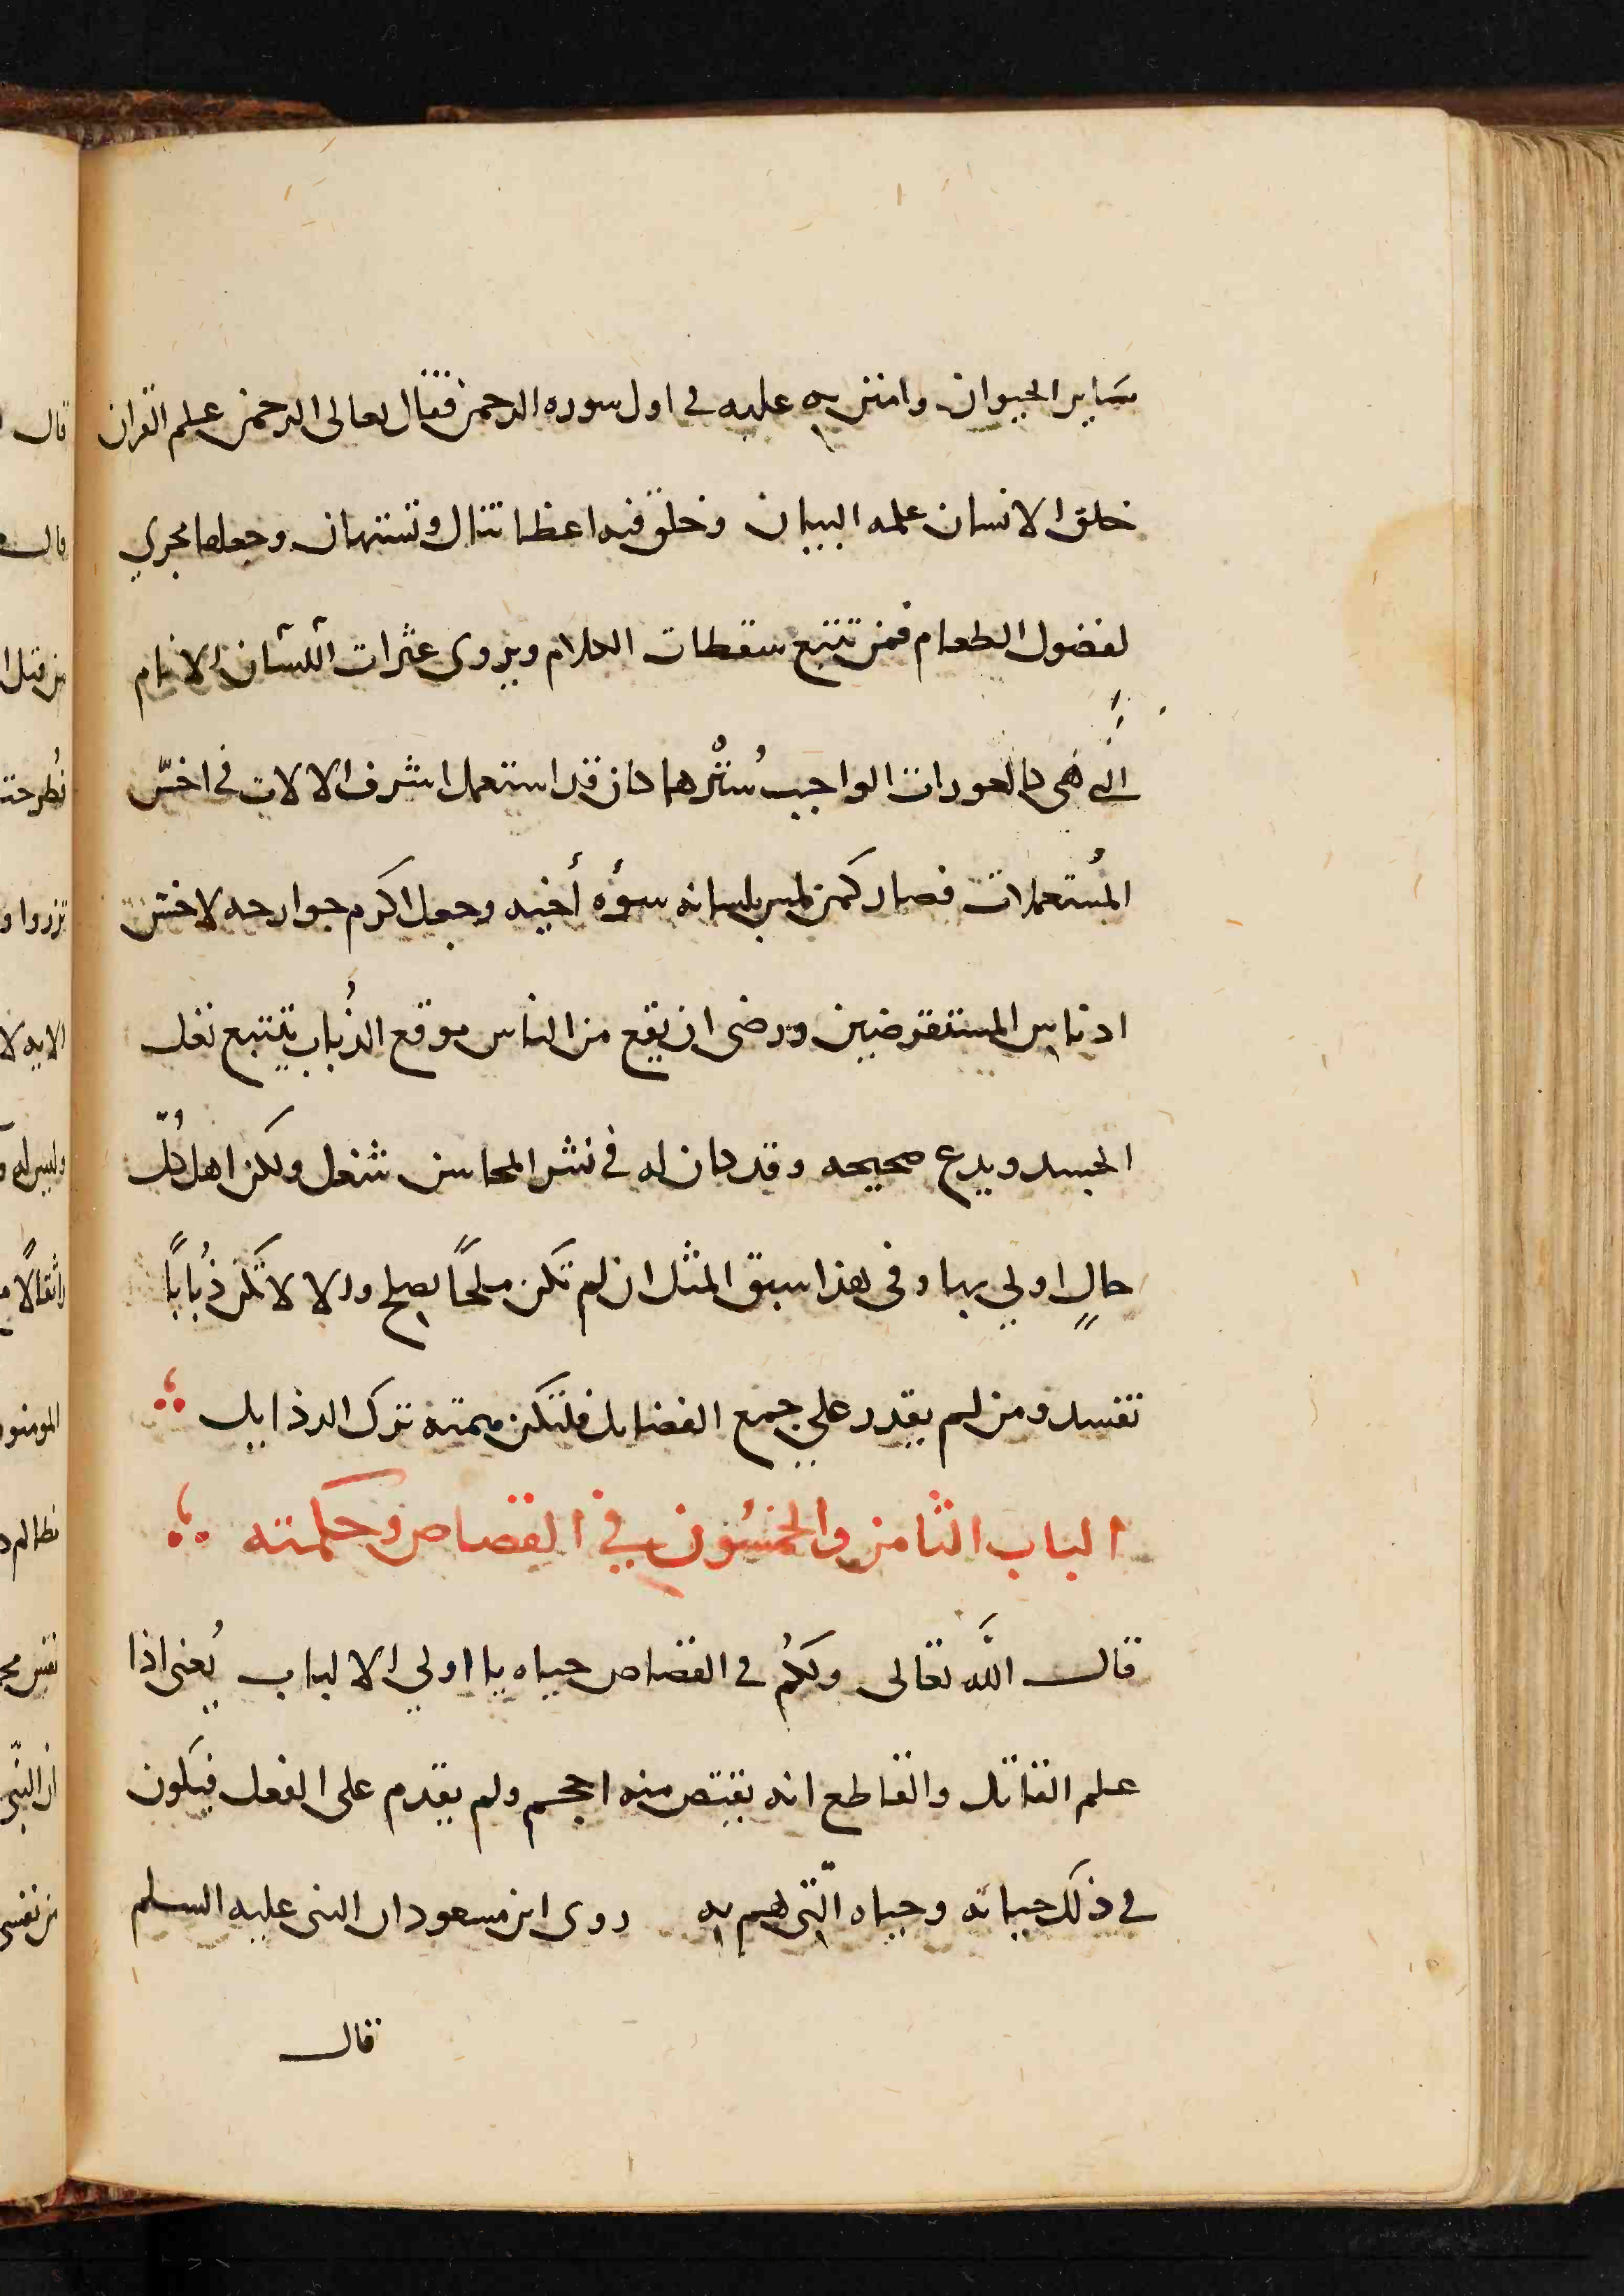 ساير الحيوان وامتن به عليه في اول سوره الرحمن فقال تعالى الرحمن علم القران
خلق الانسان علمه البيان وخلق فيه اعضا تذال وتستهان وجعلها مجري
لفضول الطعام فمن تتبع سقطات الكلام ويروى عثرات اللسان الانام
التي هي كالعورات الواجب سُتْرها كان قد استعمل اشرف الالات في اخسّ
المُستعملات فصار كمن لمس بلسانه سوُه أخيه وجعل اكرم جوارحه لاخس
ادناس المستقرضين ورضى ان يقع من الناس موقع الذُباب يتتبع نغل
الجسد ويدع صحيحه وقد كان له في نشر المحاسن شغل ولكن اهل كُلّ
حالٍ اولي بها وفي هذا سبق المثل ان لم تكن ملحًا يصلح والا لا تكن ذُبابًا
تفسد ومن لم يقدر علي جمع الفضايل فلتكن همته ترك الرذايل
الباب الثامن والخمسُون في القصاص وحكمته
قال اللَّه تعالى ولكُم في القصاص حياه يا اولي الالباب يُعني اذا
علم القاتل والقاطع انه يقتص منه احجم ولم يقدم على الفعل فيكون
في ذلك حياته وحياه الّتي لهم به روى ابن مسعود ان النبى عليه السلم
قال